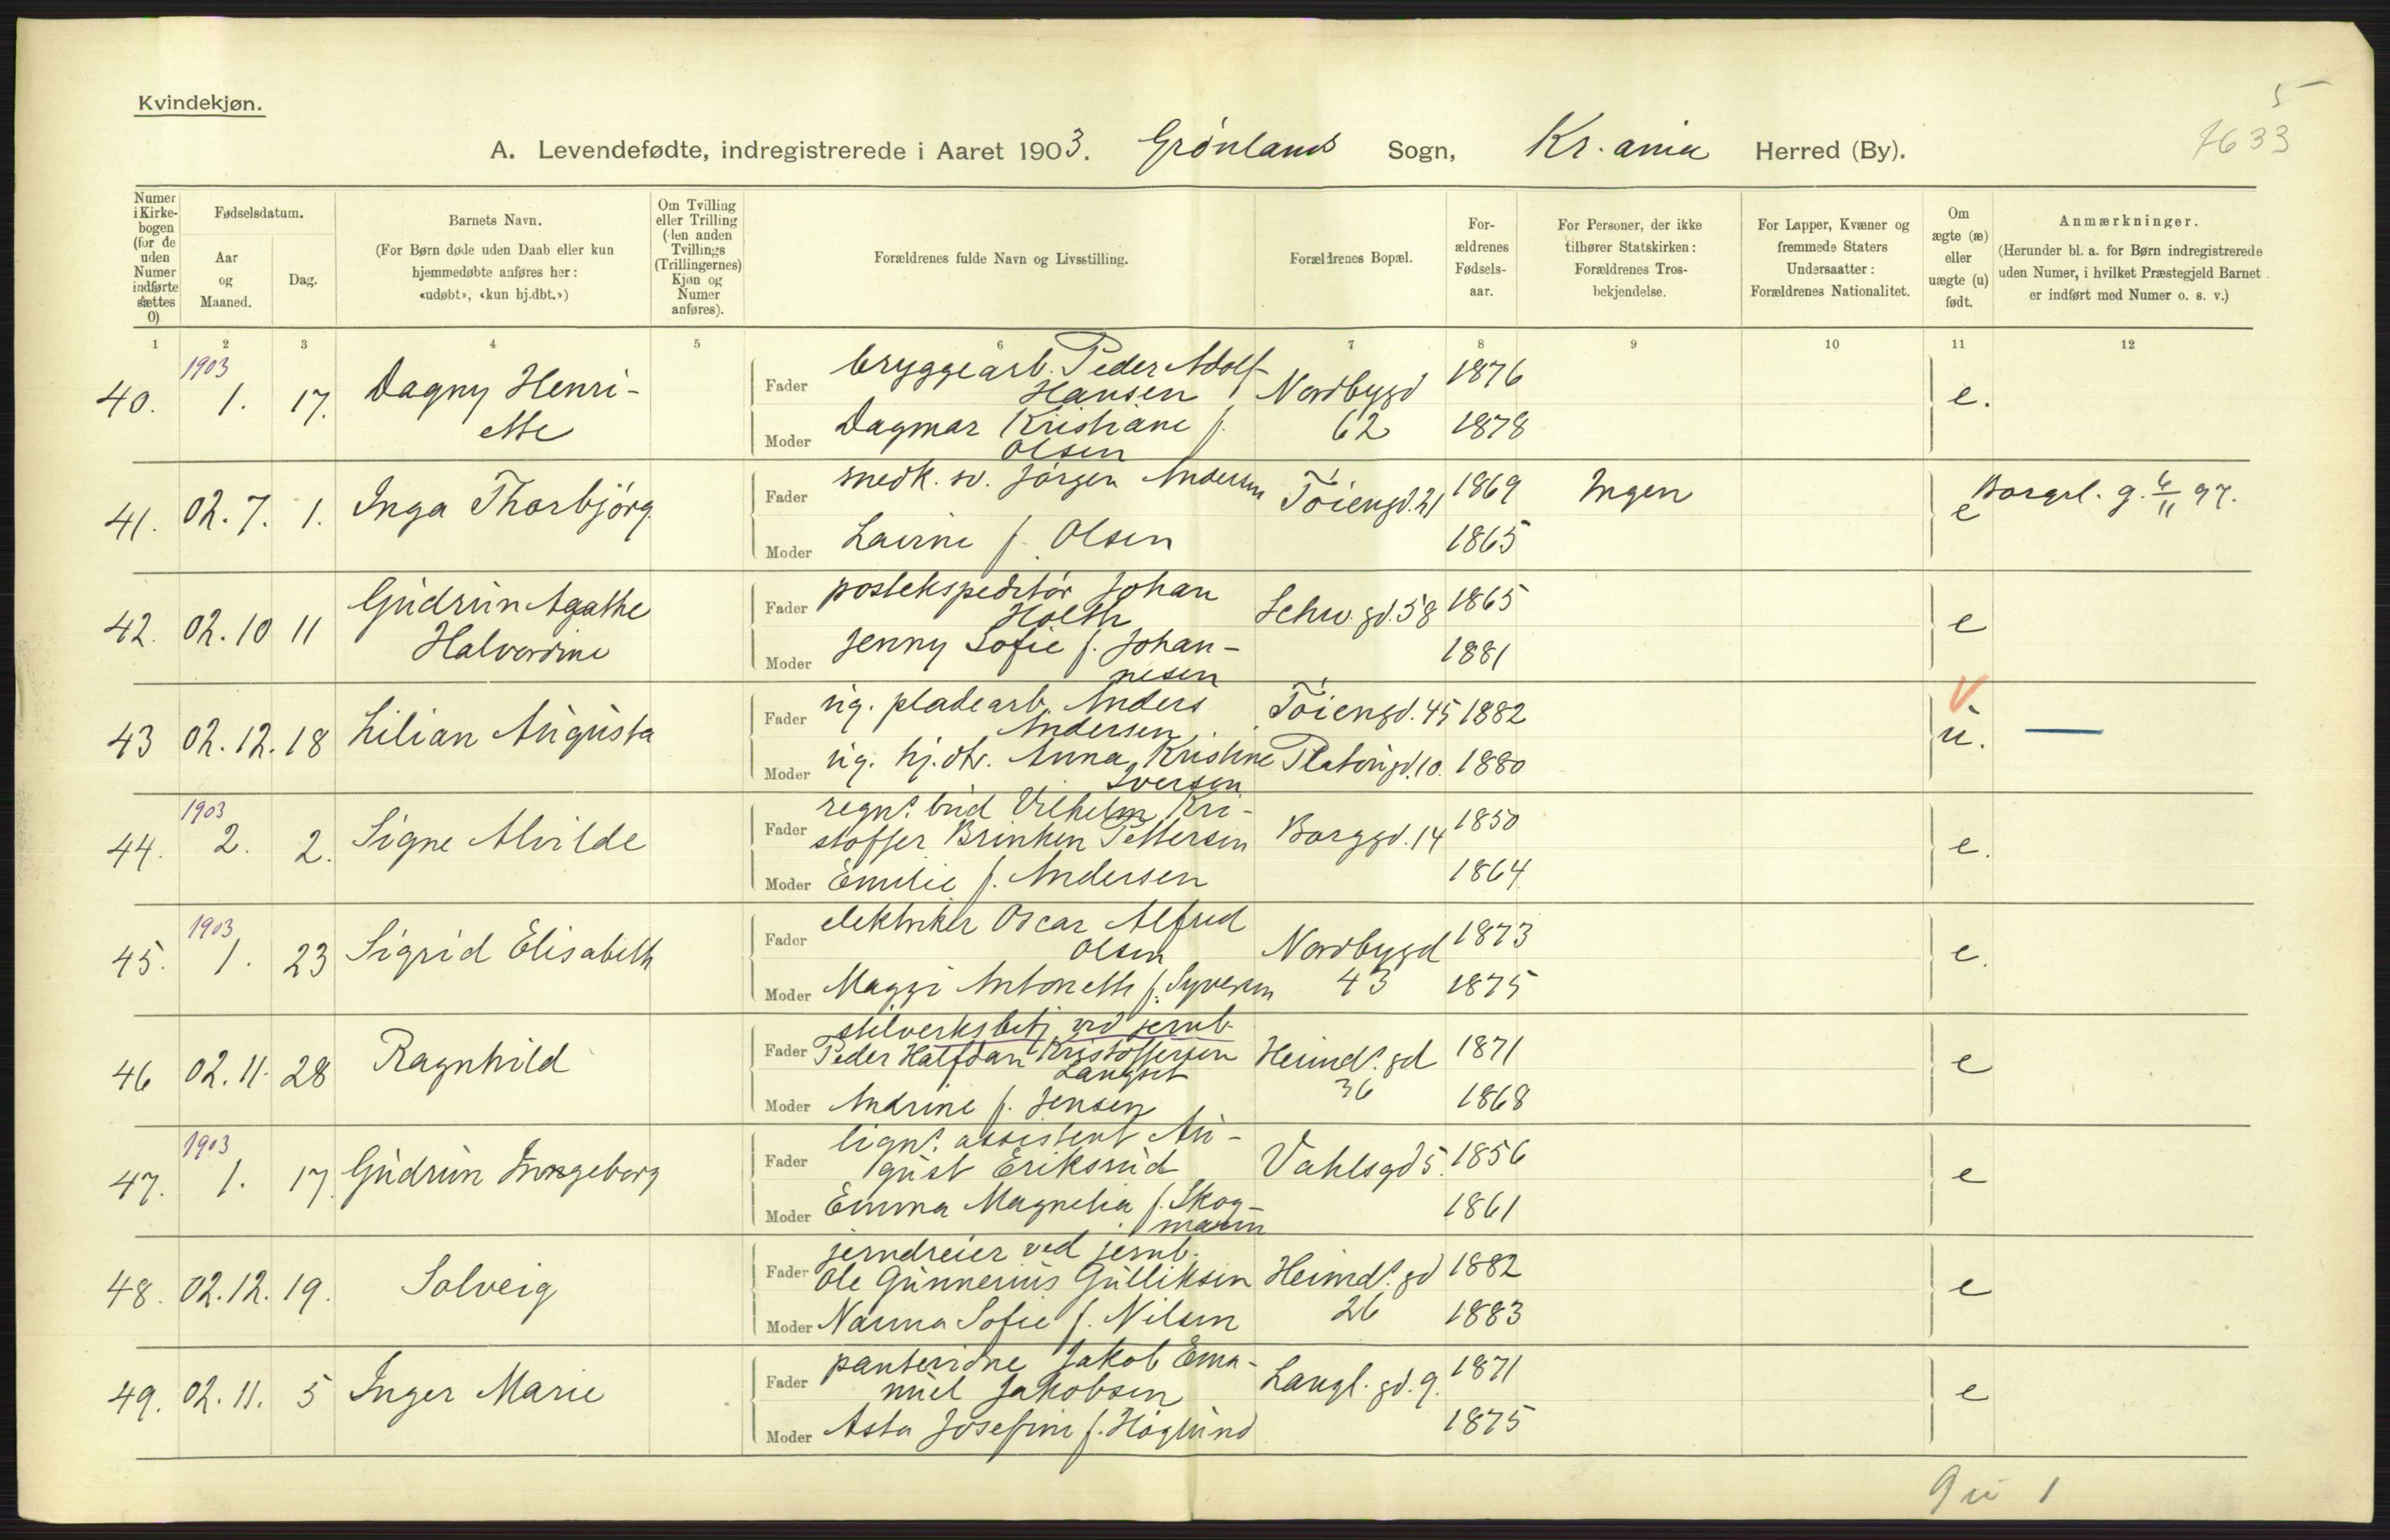 Kvindekjøn.
5
7633
A. Levendefødte, indregistrerede i Aaret 1903. Grönlands Sogn, Kr.ania Herred (By).
Numer i Kirkebogen (for de uden Numer indførte sættes 0)
Fødselsdatum.
Aar og Maaned.
Dag.
Barnets Navn.
(For Børn døde uden Daab eller kun hjemmedøbte anføres her: «udøbt», «kun hj.dbt.»)
Om Tvilling eller Trilling (den anden Tvillings (Trillingernes) Kjøn og Numer anføres).
Forældrenes fulde Navn og Livsstilling.
Forældrenes Bopæl.
Forældrenes Fødselsaar.
For Personer, der ikke tilhører Statskirken: Forældrenes Trosbekjendelse.
For Lapper, Kvæner og fremmede Staters Undersaatter: Forældrenes Nationalitet.
Om ægte (æ) eller uægte (u) født.
Anmærkninger.
(Herunder bl. a. for Børn indregistrerede uden Numer, i hvilket Præstegjeld Barnet er indført med Numer o. s. v.)
1 2 3 4 5 6 7 8 9 10 11 12
40. 1903 1. 17. Dagny Henri-
ette
Fader bryggearb. Peder Adolf
Hansen Nordbygd 1876 e.
Moder Dagmar Kristiane f. 62 1878
Olsen
41. 02. 7. 1. Inga Thorbjörg
Fader snedk. sv. Jörgen Andersen Töiengd. 21 1869 Ingen e Borgerl. g. 6/11 97.
Moder Lavine f. Olsen 1865
42. 02. 10 11 Gudrun Agathe
Halvordine
Fader postekspeditör Johan
Holth Schw. gd. 58 1865 e
Moder Jenny Sofie f. Johan-
nesen 1881
43 02. 12. 18 Lilian Augusta
Fader ug. pladearb. Anders
Andersen Töiengd. 45 1882 u. —
Moder ug. hj. dtr. Anna Kristine
Iversen Platougd. 10. 1880
44. 1903 2. 2. Signe Alvilde
Fader regns. bud Vilhelm Kri-
stoffer Brinken Pettersen Borggd. 14 1850 e.
Moder Emilie f. Andersen 1864
45. 1903 1. 23 Sigrid Elisabeth
Fader elektriker Oscar Alfred
Olsen Nordbygd 1873 e.
Moder Maggi Antonette f. Syversen 43 1875
46 02. 11. 28 Ragnhild
Fader stilverksbetj. ved jernb.
Peder Halfdan Kristoffersen
Langset Heimds. gd 1871 e
Moder Andrine f. Jensen 36 1868
47. 1903 1. 17. Gudrun Ingeborg
Fader ligns. assistent Au-
gust Eriksrud Vahlsgd 5. 1856 e
Moder Emma Magnelia f. Skog-
mann 1861
48. 02. 12. 19. Solveig
Fader jerndreier ved jernb.
Ole Gunnerius Gulliksen Heimds. gd 1882 e
Moder Nanna Sofie f. Nilsen 26 1883
49. 02. 11. 5 Inger Marie
Fader Jakob Ema-
nuel Jakobsen Langl. gd. 9. 1871 e
Moder Asta Josefine f. Höglund 1875
9 u 1